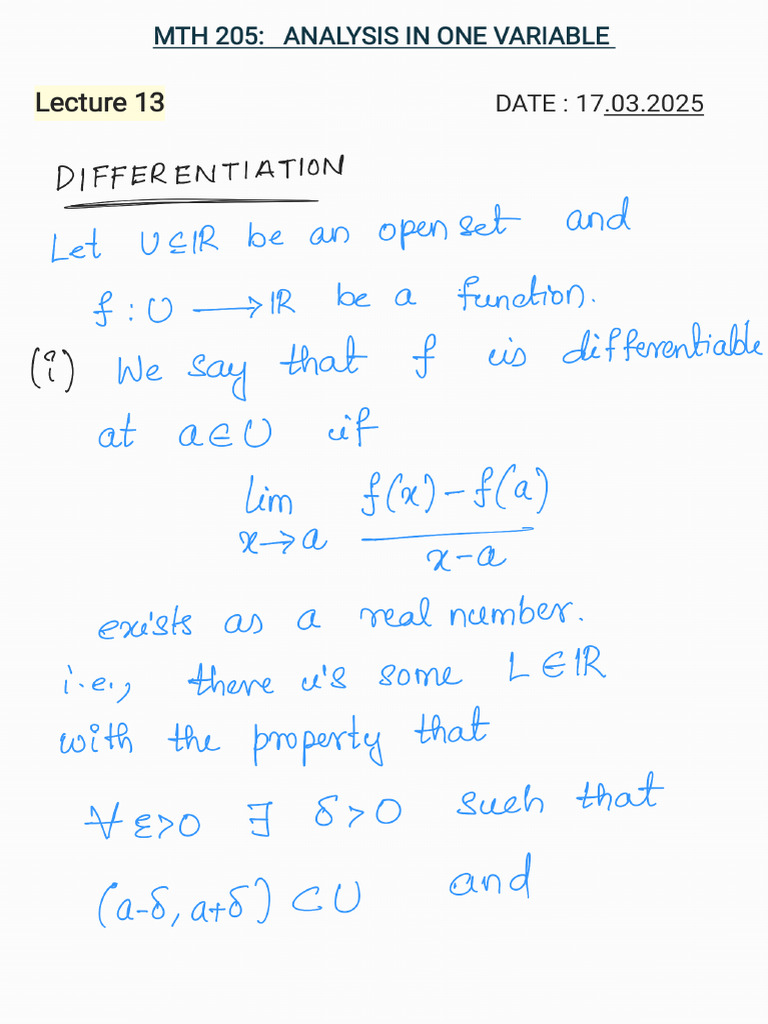 MTH 205: ANALYSIS IN ONE VARIABLE
Lecture 13 DATE : 17.03.2025
DIFFERENTIATION
Let U⊆ℝ be an open set and
f : U ⟶ ℝ be a function.
(i) We say that f is differentiable
at a∈U if
lim f(x)-f(a)
x→a x-a
exists as a real number.
i.e., there is some L∈ℝ
with the property that
∀ε>0 ∃ δ>0 such that
(a-δ, a+δ) ⊂ U and